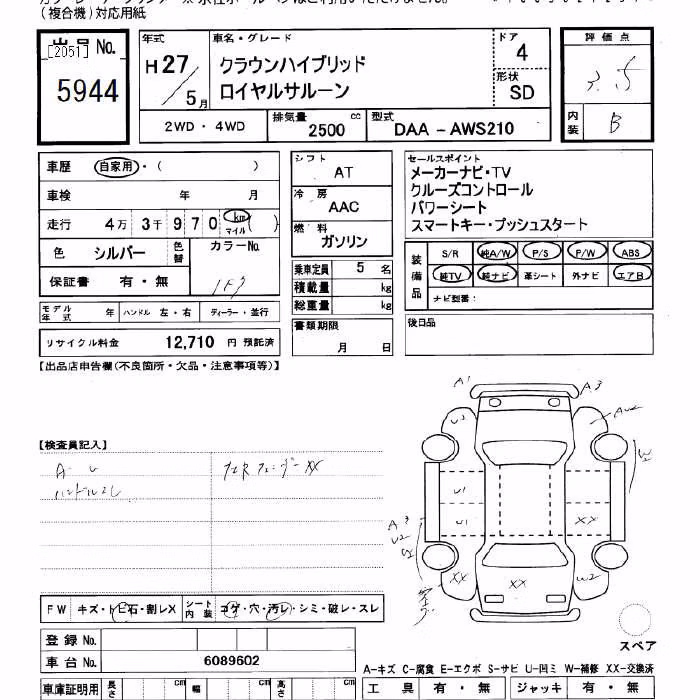 (複合機)対応用紙
出品 No.
[2051]
5944
年式
H27/5月
車名・グレード
クラウンハイブリッド
ロイヤルサルーン
ドア
4
形状
SD
評価点
3.5
内装
B
2WD・4WD
排気量
2500 cc
型式
DAA-AWS210
車歴 自家用・( )
車検 年 月
走行 4万3千970 km マイル ( )
色 シルバー 色替
カラーNo.
1F7
保証書 有・無
モデル年式 年 ハンドル 左・右 ディーラー・並行
リサイクル料金 12,710 円 預託済
シフト
AT
冷房
AAC
燃料
ガソリン
乗車定員 5 名
積載量 kg
総重量 kg
書類期限
月 日
セールスポイント
メーカーナビ・TV
クルーズコントロール
パワーシート
スマートキー・プッシュスタート
装備品
S/R 純A/W P/S P/W ABS
純TV 純ナビ 革シート 外ナビ エアB
ナビ型番:
後日品
【出品店申告欄(不良箇所・欠品・注意事項等)】
【検査員記入】
A・U
ハンドルスレ
A1
A3
U2
U1
U1
A3
U2
XX
XX
XX
W2
FW キズ・トビ石・割レX
シート内装 コゲ・穴・汚レ・シミ・破レ・スレ
登録 No.
車台 No. 6089602
車庫証明用 長さ cm 幅 cm 高さ cm
スペア
A-キズ C-腐食 E-エクボ S-サビ U-凹ミ W-補修 XX-交換済
工具 有・無 ジャッキ 有・無